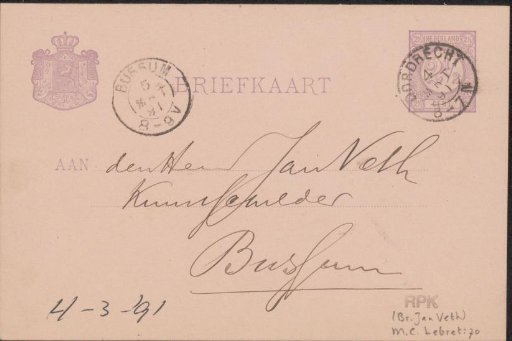 NEDERLAND
BRIEFKAART
BUSSUM
5
91
8-9V
DORDRECHT
4
91
AAN den Heer Jan Veth
Kunstschilder
Bussum
4-3-'91
RPK
(Br. Jan Veth)
M.C. Lebret: 70